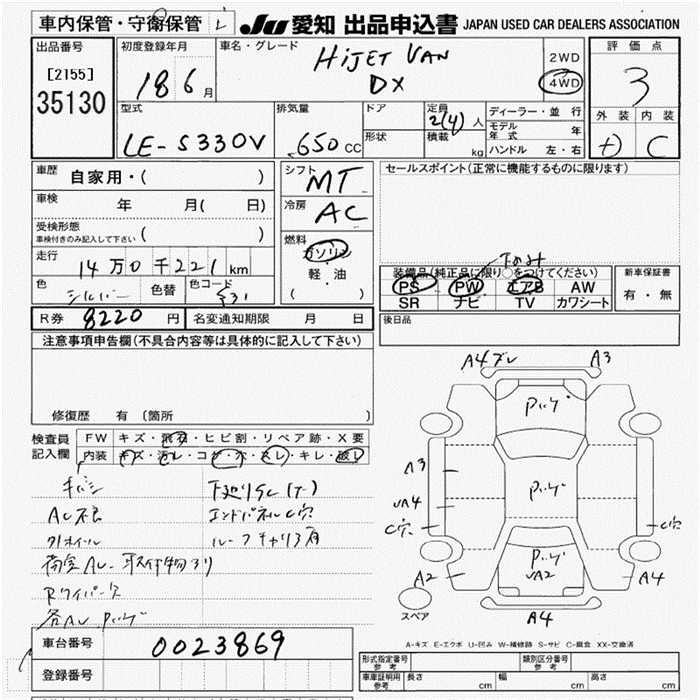 車内保管・守衛保管
JU 愛知 出品申込書 JAPAN USED CAR DEALERS ASSOCIATION
出品番号
[2155]
35130
初度登録年月
18 6 月
車名・グレード
HIJET VAN
DX
2WD
4WD
評価点
3
外装 内装
C
型式
LE-S330V
排気量
650 CC
ドア
形状
定員
2(4) 人
積載
kg
ディーラー・並行
モデル年式 年
ハンドル 左・右
車歴
自家用・( )
車検
年 月( 日)
受検形態
車検付きのみ記入して下さい ( )
走行
14万0千221 km
色
シルバー
色替
色コード
シフト
MT
冷房
AC
燃料
ガソリン
軽・油
( )
セールスポイント(正常に機能するものに限ります)
装備品(純正品に限り○をつけてください)
PS PW エアB AW
SR ナビ TV カワシート
新車保証書
有・無
R券 8220 円
名変通知期限 月 日
後日品
注意事項申告欄(不具合内容等は具体的に記入して下さい)
修復歴 有 (箇所 )
検査員記入欄
FW キズ・飛石・ヒビ割・リペア跡・X要
内装 キズ・汚レ・コゲ・穴・スレ・キレ・破レ
下廻りSC(下)
エンドパネルC穴
ルーフキャリア有
荷室AU、取付物アリ
Rワイパー欠
A4 A3
A3
A4
C穴
C穴
A2
A2
A4
A4
スペア
A-キズ E-エクボ U-凹み W-補修跡 S-サビ C-腐食 XX-交換済
車台番号
0023869
登録番号
形式指定番号 参考
類別区分番号 参考
車庫証明用 参考
長さ cm 幅 cm 高さ cm